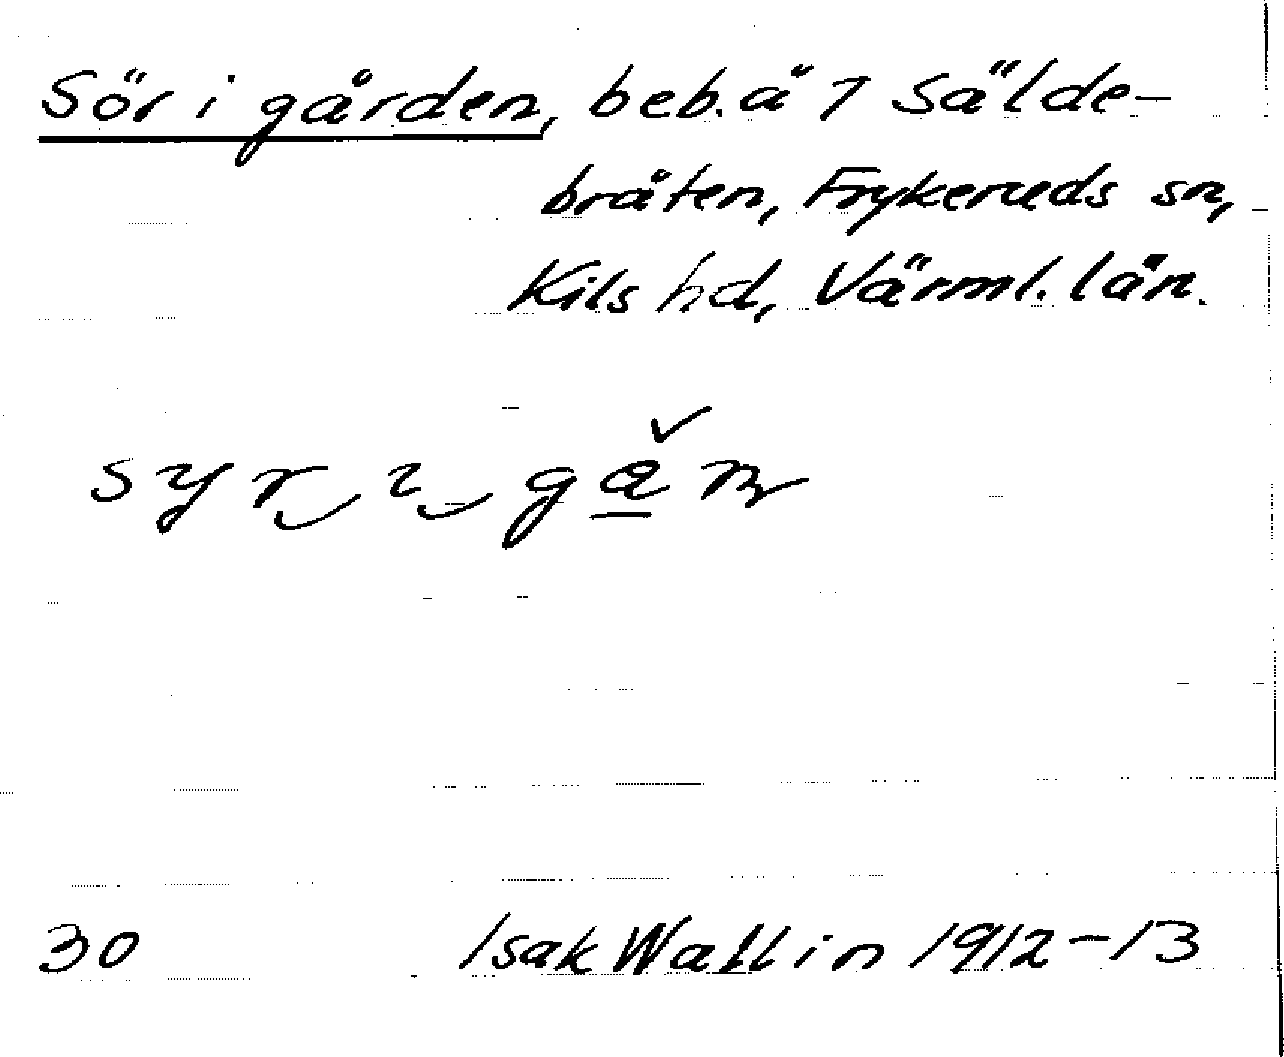 Sör i gården, beb. å 7 Sälde-
bråten, Frykeruds sn,
Kils hd, Värml. län.
syr ı gǎ̲n
30 Isak Wallin 1912-13